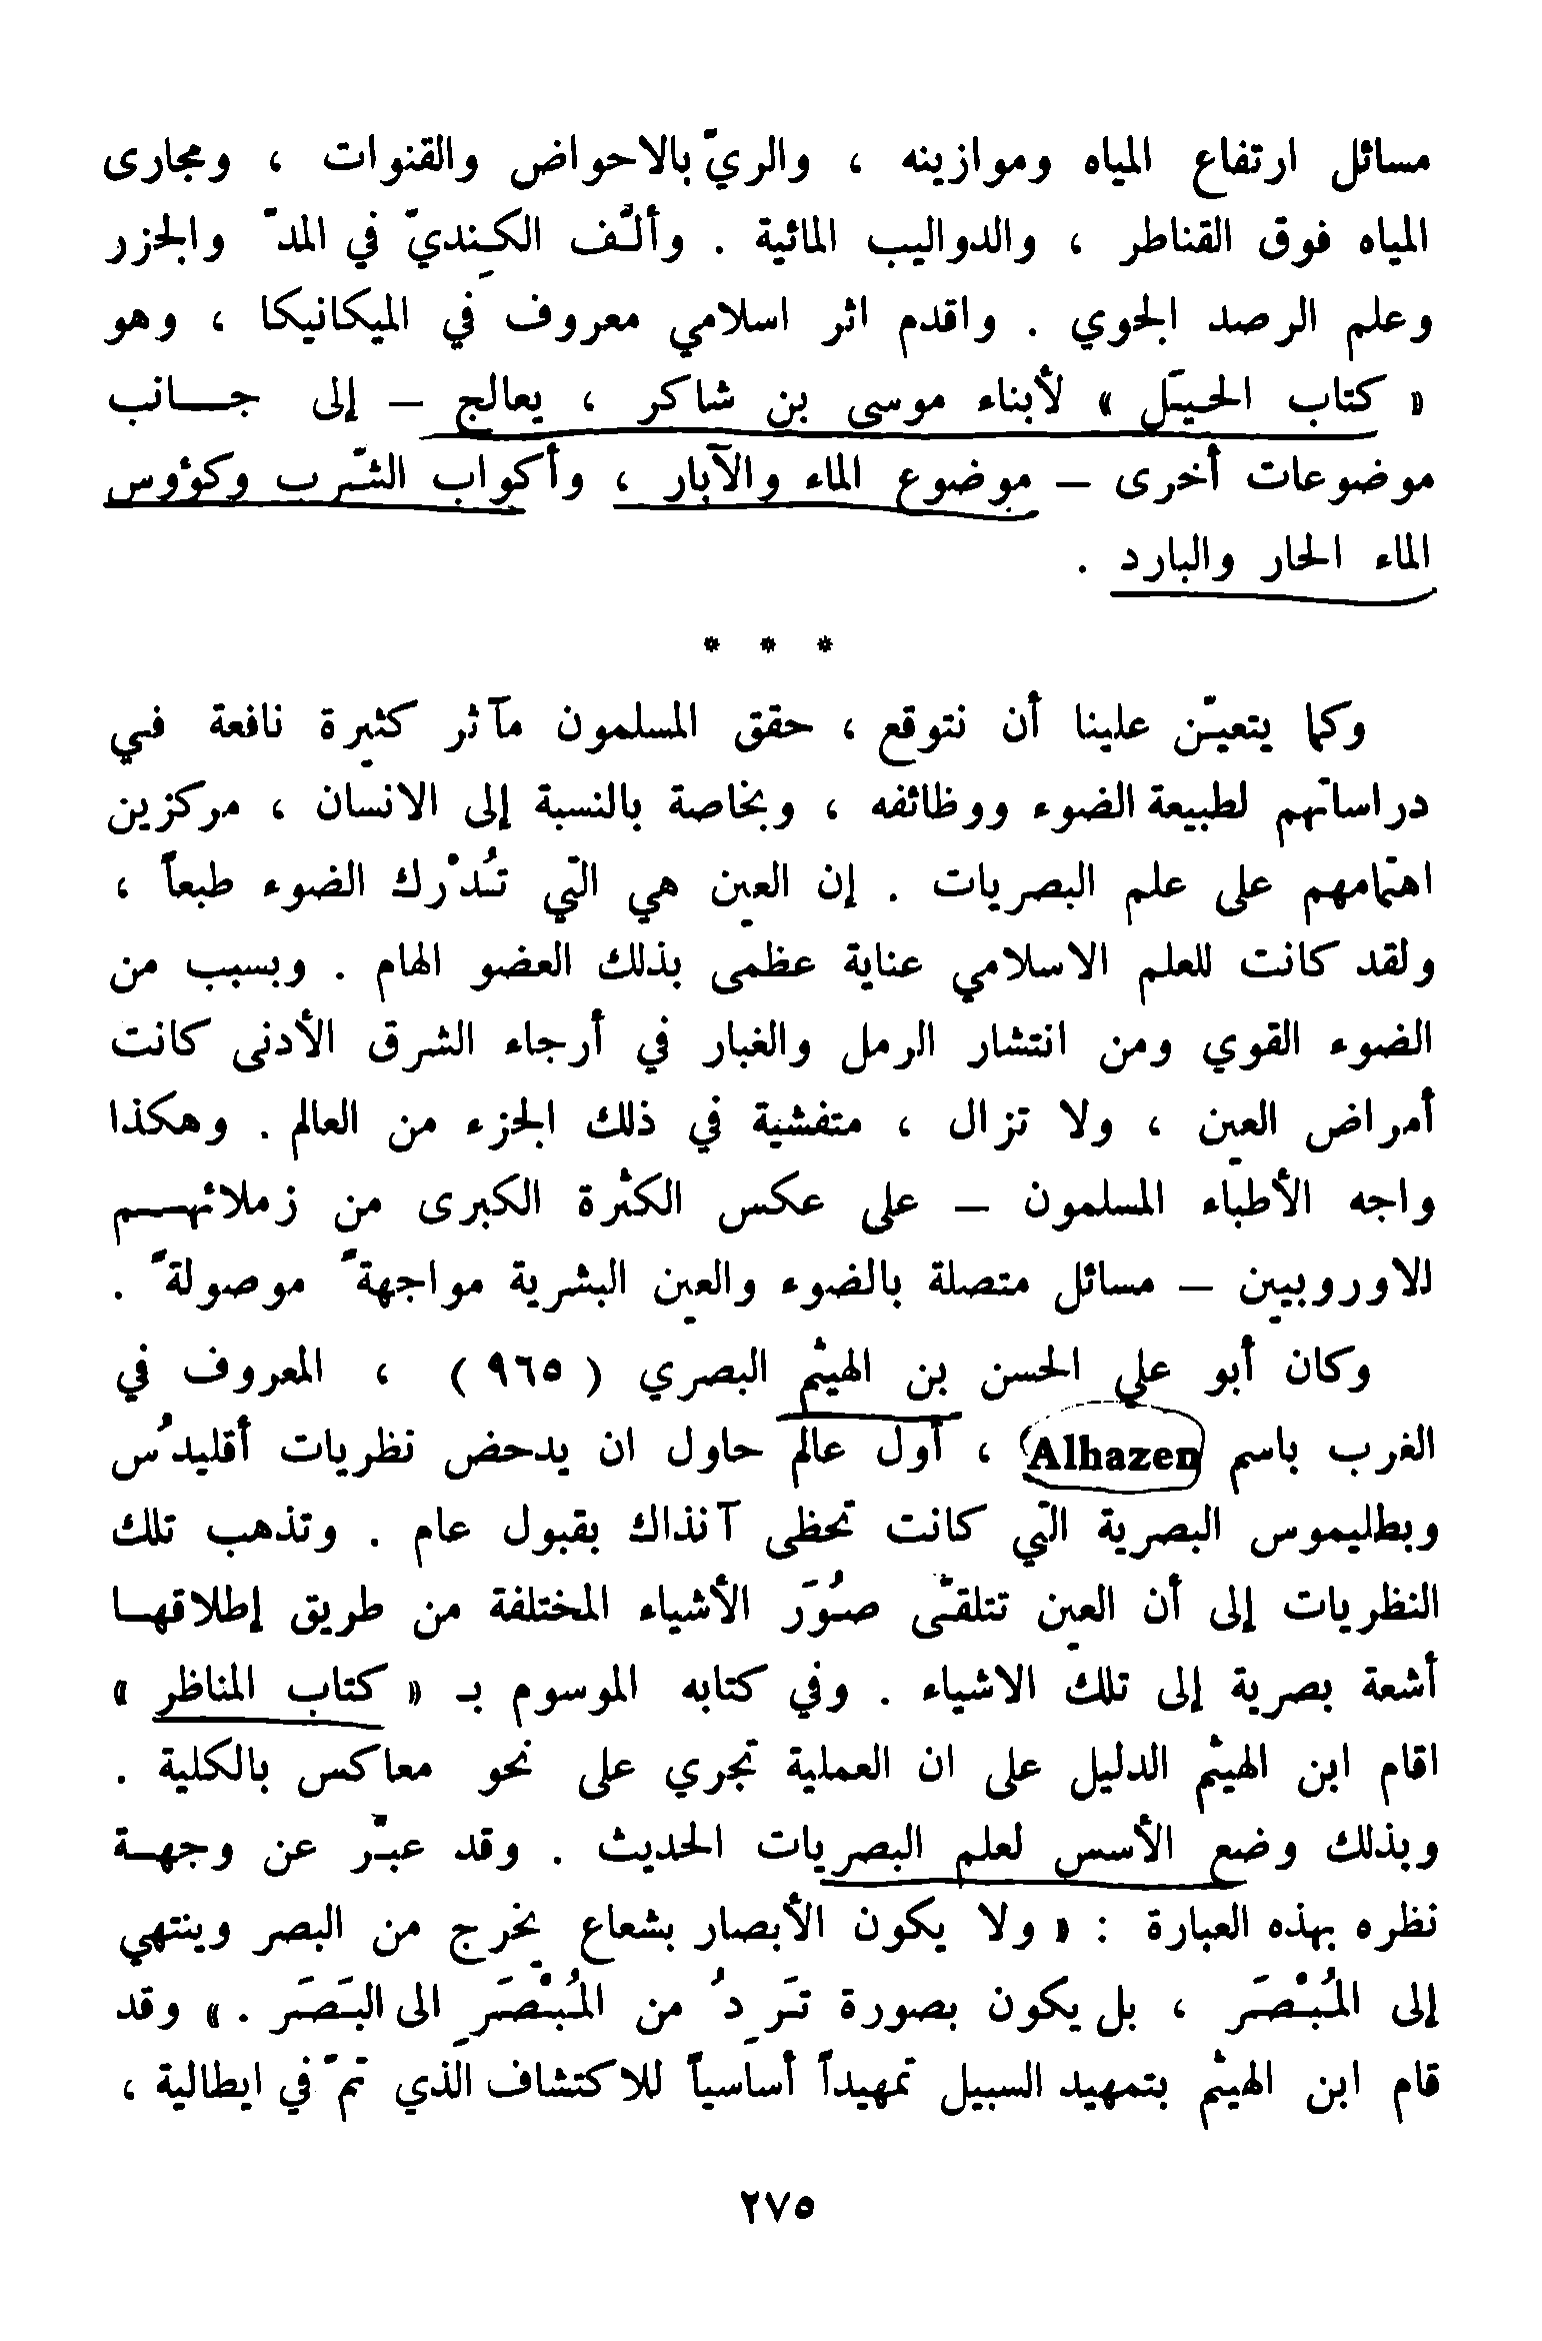 مسائل ارتفاع المياه وموازينه ، والريّ بالاحواض والقنوات ، ومجارى
المياه فوق القناطر ، والدواليب المائية . وألّف الكِنديّ في المدّ والجزر
وعلم الرصد الجوي . واقدم اثر اسلامي معروف في الميكانيكا ، وهو
« كتاب الحيَل » لأبناء موسى بن شاكر ، يعالج – إلى جانب
موضوعات أخرى – موضوع الماء والآبار ، وأكواب الشّرب وكؤوس
الماء الحار والبارد .
* * *
وكما يتعيّن علينا أن نتوقع ، حقق المسلمون مآثر كثيرة نافعة في
دراساتهم لطبيعة الضوء ووظائفه ، وبخاصة بالنسبة إلى الانسان ، مركزين
اهتمامهم على علم البصريات . إن العين هي التي تُدْرك الضوء طبعاً ،
ولقد كانت للعلم الاسلامي عناية عظمى بذلك العضو الهام . وبسبب من
الضوء القوي ومن انتشار الرمل والغبار في أرجاء الشرق الأدنى كانت
أمراض العين ، ولا تزال ، متفشية في ذلك الجزء من العالم . وهكذا
واجه الأطباء المسلمون – على عكس الكثرة الكبرى من زملائهم
للاوروبيين – مسائل متصلة بالضوء والعين البشرية مواجهةً موصولةً .
وكان أبو علي الحسن بن الهيثم البصري ( ٩٦٥ ) ، المعروف في
الغرب باسم Alhazen ، أول عالم حاول ان يدحض نظريات أقليدُس
وبطليموس البصرية التي كانت تحظى آنذاك بقبول عام . وتذهب تلك
النظريات إلى أن العين تتلقّى صُوَر الأشياء المختلفة من طريق إطلاقها
أشعة بصرية إلى تلك الاشياء . وفي كتابه الموسوم بـ « كتاب المناظر »
اقام ابن الهيثم الدليل على ان العملية تجري على نحو معاكس بالكلية .
وبذلك وضع الأسس لعلم البصريات الحديث . وقد عبّر عن وجهة
نظره بهذه العبارة : « ولا يكون الأبصار بشعاع يخرج من البصر وينتهي
إلى المُبْصَر ، بل يكون بصورة تَرِدُ من المُبْصَرِ الى البَصَر . » وقد
قام ابن الهيثم بتمهيد السبيل تمهيداً أساسياً للاكتشاف الذي تمّ في ايطالية ،
٢٧٥